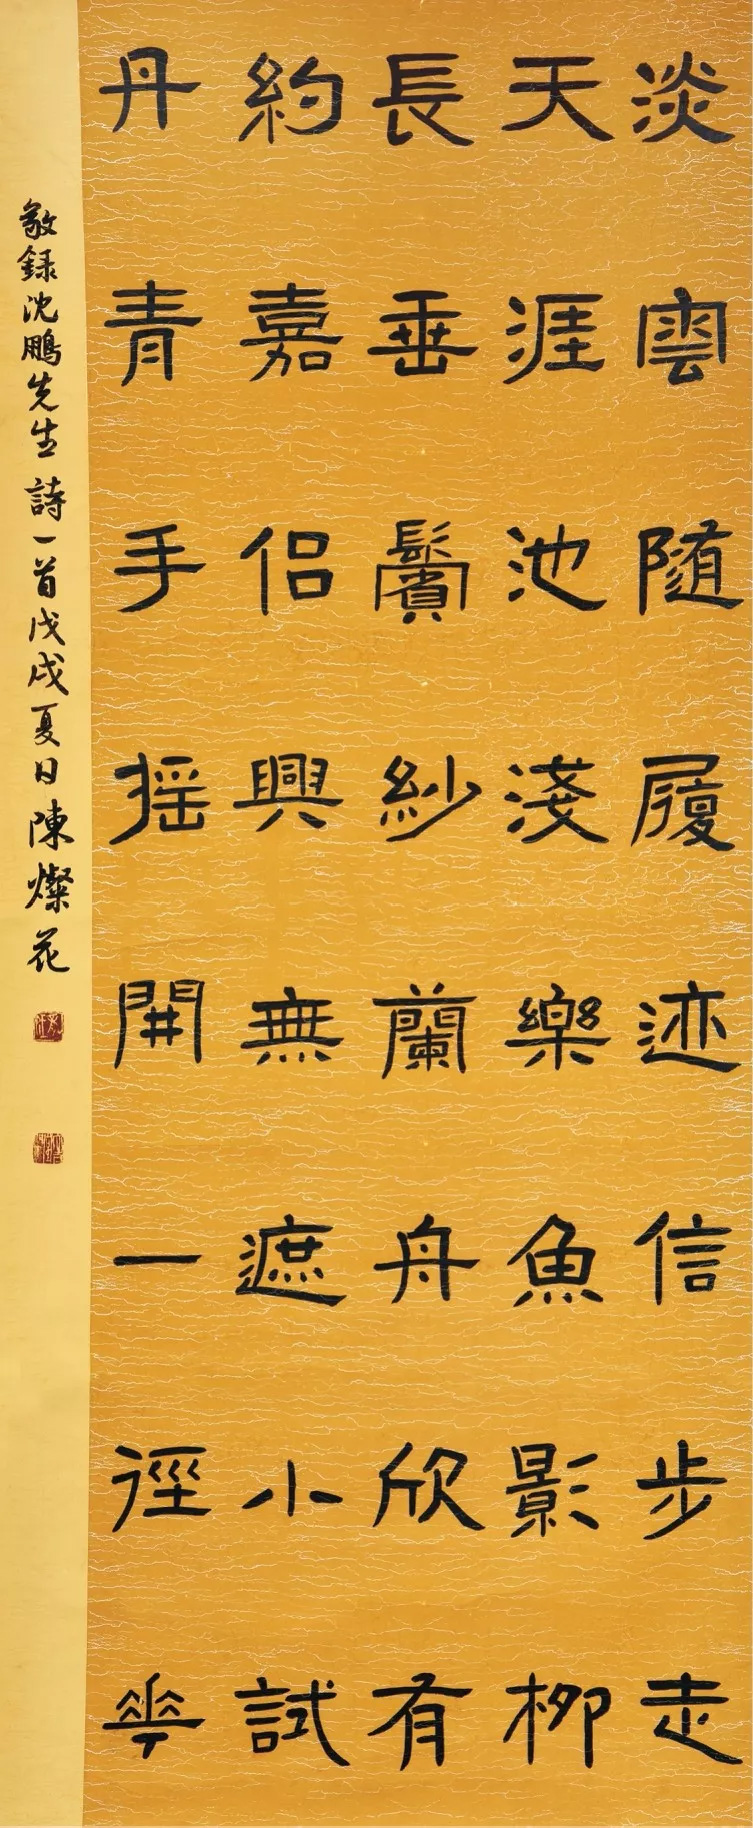 淡雲随履迹信步走
天涯池淺樂魚影柳
長垂鬢紗蘭舟欣有
約嘉侣興無遮小試
丹青手摇開一徑華
敬録沈鵬先生詩一首戊戌夏日陳燦花